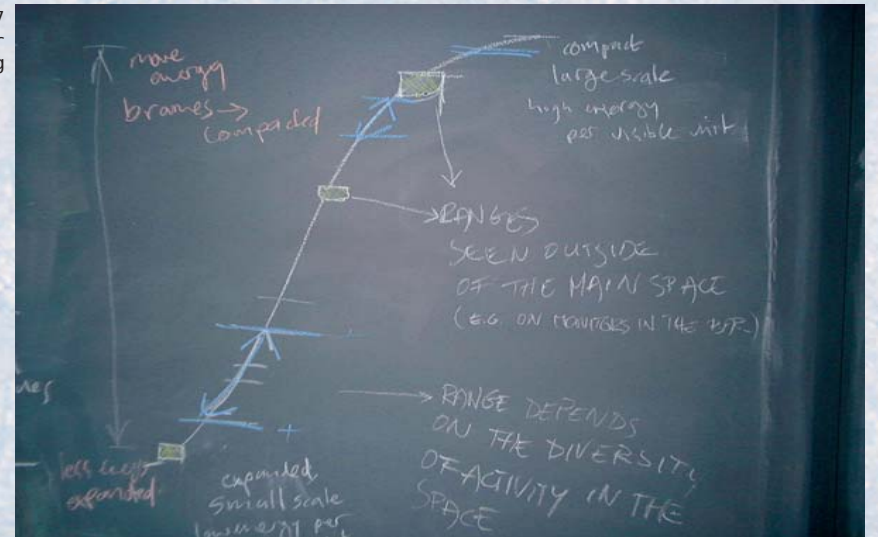 more
energy
branes →
compacted
compact
large scale
high energy
per visible unit
RANGES
SEEN OUTSIDE
OF THE MAIN SPACE
(E.G. ON IN THE
RANGE DEPENDS
ON THE DIVERSITY
OF ACTIVITY IN THE
SPACE
less energy
expanded
expanded
small scale
low energy per